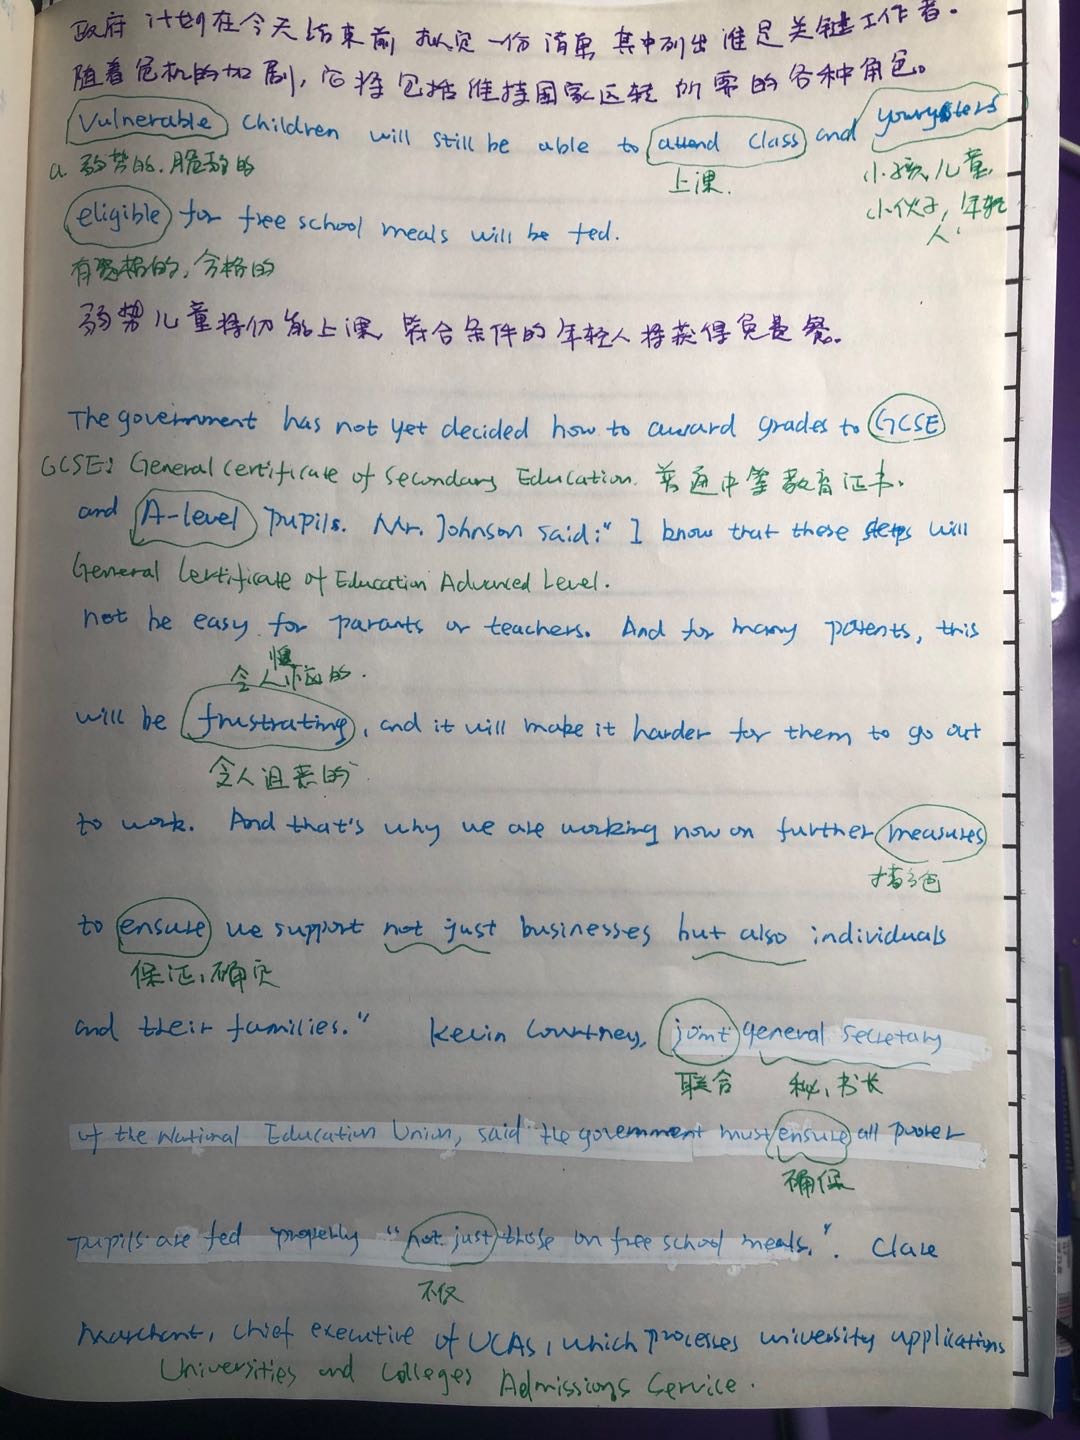 政府 计划在今天结束前 拟定一份清单 其中列出谁是关键工作者.
随着危机的加剧, 它将包括维持国家运转所需的各种角色。
Vulnerable children will still be able to attend class and youngsters
a. 弱势的. 脆弱的 上课. 小孩,儿童,
小伙子, 年轻
人.
eligible for free school meals will be fed.
有资格的, 合格的
弱势儿童将仍能上课, 符合条件的年轻人将获得免费餐。
The government has not yet decided how to award grades to GCSE
GCSE: General Certificate of Secondary Education. 普通中等教育证书.
and A-level pupils. Mr. Johnson said: " I know that these steps will
General Certificate of Education Advanced Level.
not be easy for parants or teachers. And for many parents, this
令人恼的.
will be frustrating, and it will make it harder for them to go out
令人沮丧的
to work. And that's why we are working now on further measures
措施
to ensure we support not just businesses but also individuals
保证, 确定
and their families." Kevin Courtney, joint general secretary
联合 秘书长
of the National Education Union, said the government must ensure all poorer
确保
pupils are fed properly "not just those on free school meals.". Clare
不仅
Marchant, chief executive of UCAS, which processes university applications
Universities and Colleges Admissions Service.